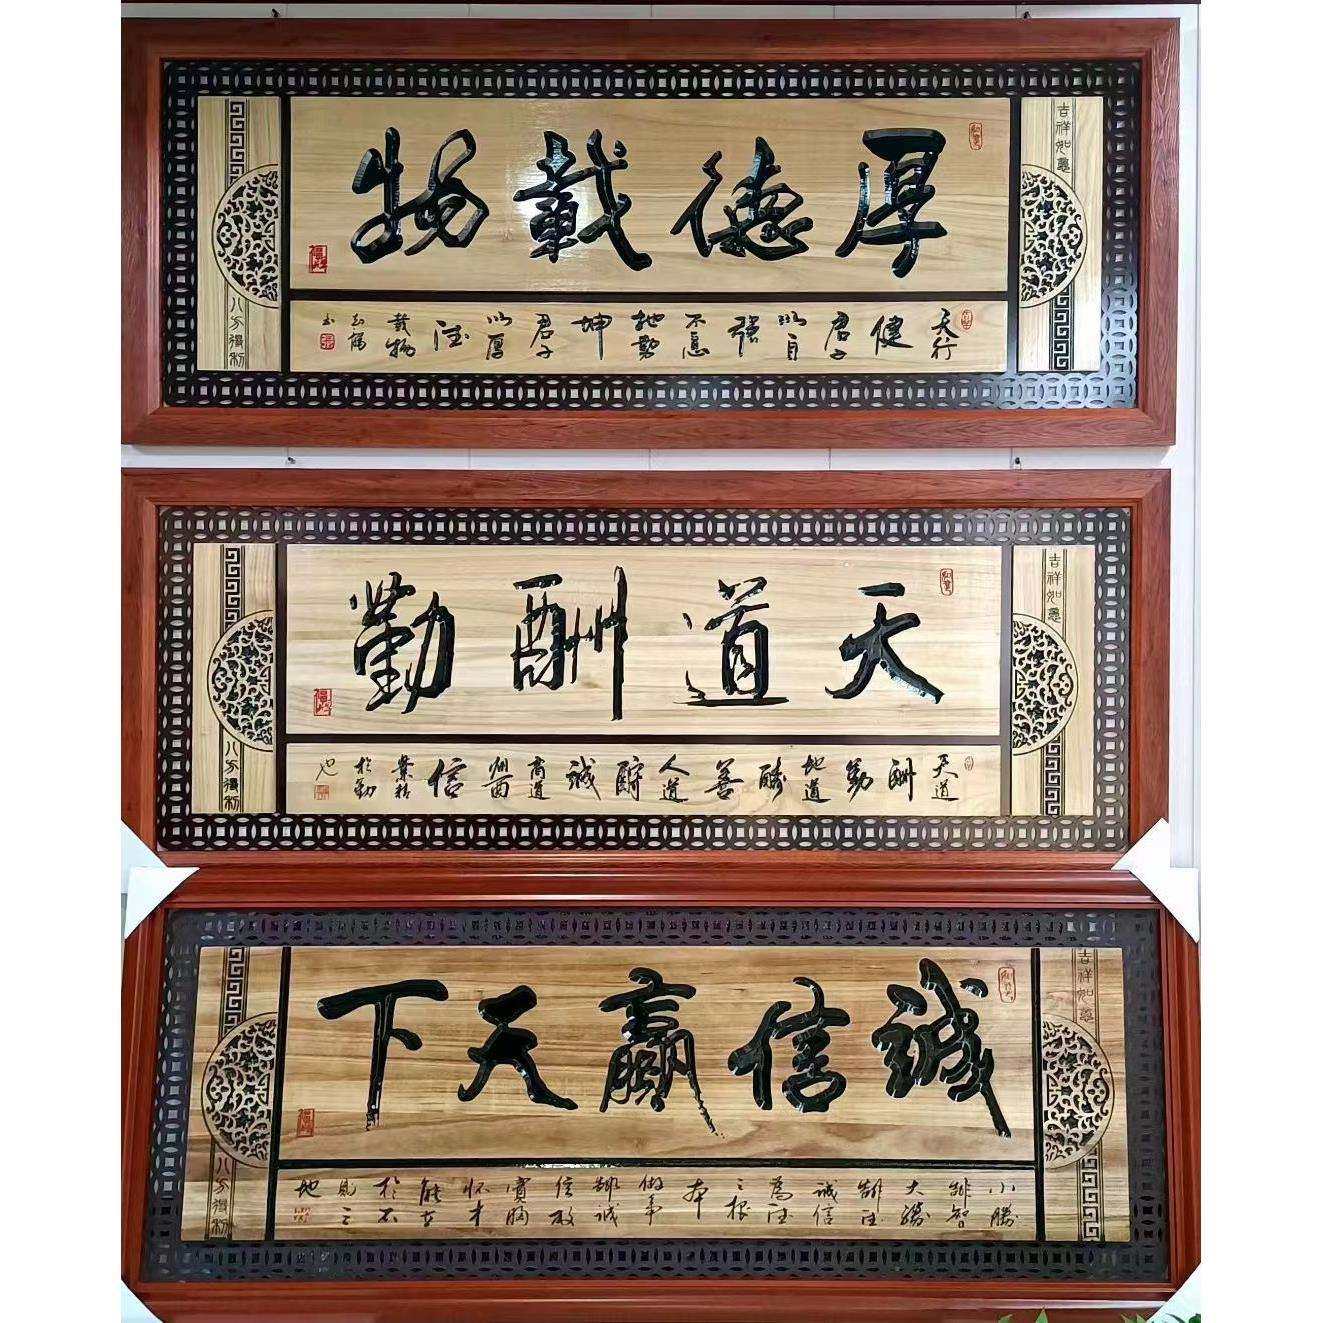 厚德載物
吉祥如意
八方得利
天行健君子以自强不息地勢坤君子以厚德載物
天道酬勤
吉祥如意
八方得利
天道酬勤地道酬善人道酬誠商道酬信業精於勤也
誠信贏天下
吉祥如意
八方得利
小勝靠智大勝靠德誠信為德之根本做事靠誠信